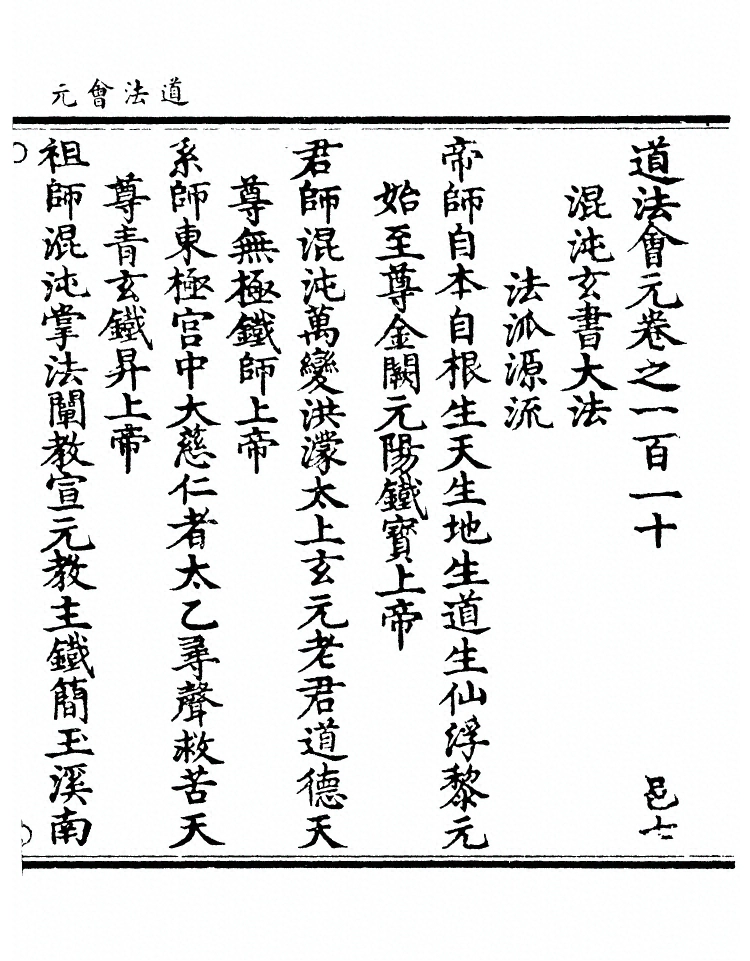 道法會元
道法會元卷之一百一十 邑七
混沌玄書大法
法派源流
帝師自本自根生天生地生道生仙浮黎元
始至尊金闕元陽鐵寶上帝
君師混沌萬變洪濛太上玄元老君道德天
尊無極鐵師上帝
系師東極宮中大慈仁者太乙尋聲救苦天
尊青玄鐵昇上帝
祖師混沌掌法闡教宣元教主鐵簡玉溪南